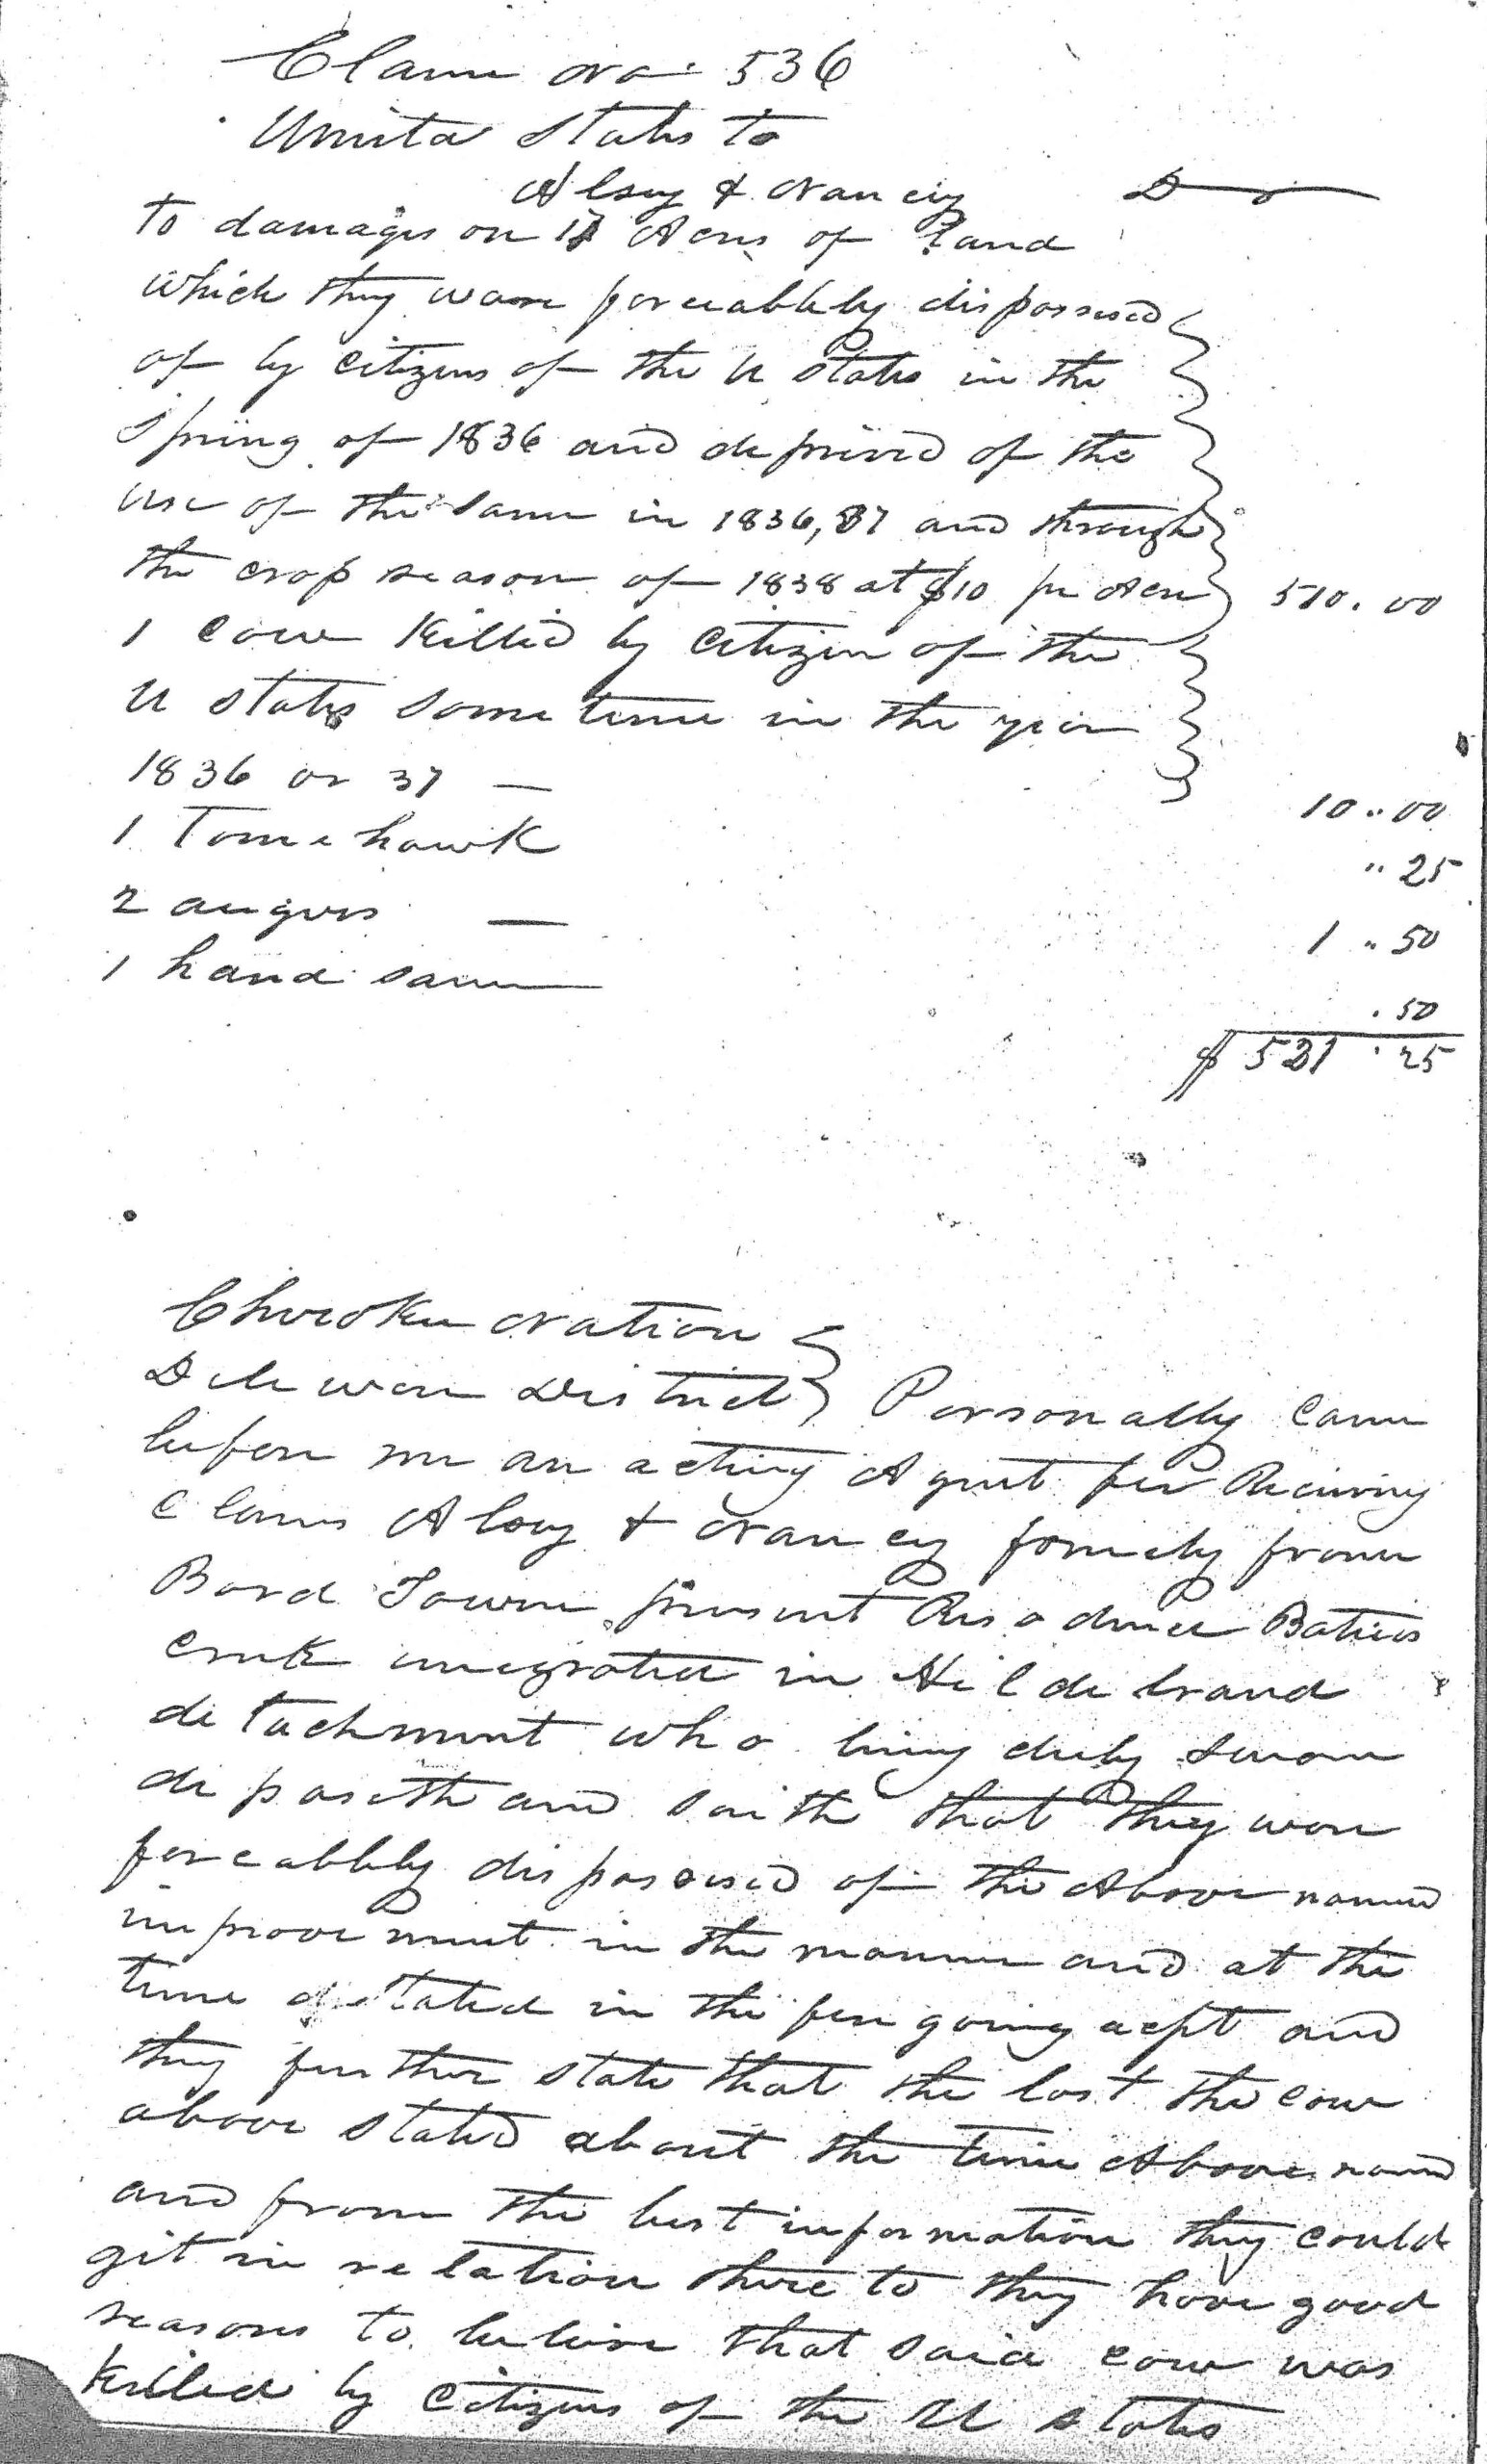 Claim No. 536
United States to
Alsey & Nancy Dr
To damages on 17 Acres of Land
which they ware forceablely dispossesed
of by citizens of the U States in the
Spring of 1836 and deprived of the
use of the same in 1836, 37 and through
the crop season of 1838 at $10 per Acre 510.00
1 cow killed by Citizen of the
U states sometime in the year
1836 or 37 — 10.00
1 Tomehawk " 25
2 augers — 1 " 50
1 hand saw .50
$ 521.25
Cherokee Nation
Deleware District Personally came
before me an acting Agent for Receiving
Claims Alsey & Nancy formely from
Bord Town present Resadince Baties
creek emegrated in Hildebrand
detachment who being duly sworn
deposeth and saith that they ware
forceablely disposesed of the Above named
improovement in the manner and at the
time stated in the foregoing acpt and
they further state that the lost the cow
above stated about the time Above named
and from the best information they could
git in relation there to they have good
reasons to beleive that said cow was
killed by Citizens of the U states